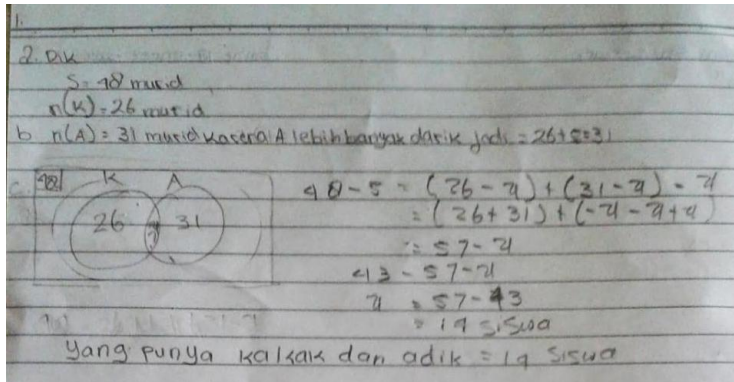 1.
2. Dik
S = 48 murid
n(K) = 26 murid
b n(A) = 31 murid karena A lebih banyak dari K jadi = 26+5=31
c. 48 K A
26 31
48 - 5 = (26 - x) + (31 - x) - x
= (26 + 31) + (-x - x + x)
= 57 - x
43 = 57 - x
x = 57 - 43
= 14 siswa
Yang punya kakak dan adik = 14 siswa